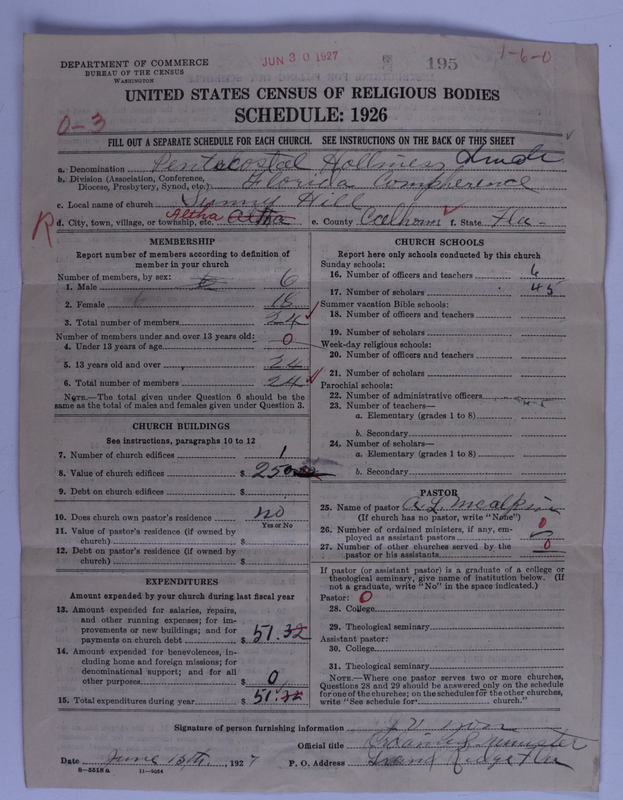 DEPARTMENT OF COMMERCE
BUREAU OF THE CENSUS
WASHINGTON
JUN 30 1927
195
1-6-0
UNITED STATES CENSUS OF RELIGIOUS BODIES
SCHEDULE: 1926
0-3
FILL OUT A SEPARATE SCHEDULE FOR EACH CHURCH. SEE INSTRUCTIONS ON THE BACK OF THIS SHEET
a. Denomination Pentacostal Holliness
b. Division (Association, Conference, Diocese, Presbytery, Synod, etc.) Florida Compherence
c. Local name of church Sunny Hill
R
d. City, town, village, or township, etc. Altha Altha e. County Calhoun f. State Fla-
MEMBERSHIP
Report number of members according to definition of member in your church
Number of members, by sex:
1. Male 6
2. Female 6 18
3. Total number of members 24
Number of members under and over 13 years old:
4. Under 13 years of age 0
5. 13 years old and over 24
6. Total number of members 24
NOTE.—The total given under Question 6 should be the same as the total of males and females given under Question 3.
CHURCH BUILDINGS
See instructions, paragraphs 10 to 12
7. Number of church edifices 1
8. Value of church edifices $ 250
9. Debt on church edifices $
10. Does church own pastor's residence no
Yes or No
11. Value of pastor's residence (if owned by church) $
12. Debt on pastor's residence (if owned by church) $
EXPENDITURES
Amount expended by your church during last fiscal year
13. Amount expended for salaries, repairs, and other running expenses; for improvements or new buildings; and for payments on church debt $ 51.32
14. Amount expended for benevolences, including home and foreign missions; for denominational support; and for all other purposes $ 0
15. Total expenditures during year $ 51.32
CHURCH SCHOOLS
Report here only schools conducted by this church
Sunday schools:
16. Number of officers and teachers 6
17. Number of scholars 45
Summer vacation Bible schools:
18. Number of officers and teachers
19. Number of scholars
Week-day religious schools:
20. Number of officers and teachers
21. Number of scholars
Parochial schools:
22. Number of administrative officers
23. Number of teachers—
a. Elementary (grades 1 to 8)
b. Secondary
24. Number of scholars—
a. Elementary (grades 1 to 8)
b. Secondary
PASTOR
25. Name of pastor A. L. McAlpin
(If church has no pastor, write "None")
26. Number of ordained ministers, if any, employed as assistant pastors 0
27. Number of other churches served by the pastor or his assistants 0
If pastor (or assistant pastor) is a graduate of a college or theological seminary, give name of institution below. (If not a graduate, write "No" in the space indicated.)
Pastor: 0
28. College
29. Theological seminary
Assistant pastor:
30. College
31. Theological seminary
NOTE.—Where one pastor serves two or more churches, Questions 28 and 29 should be answered only on the schedule for one of the churches; on the schedules for the other churches, write "See schedule for church."
Signature of person furnishing information
Official title
Date June 13th, 1927 P. O. Address Grand Ridge Fla
8-5518 a 11-9024